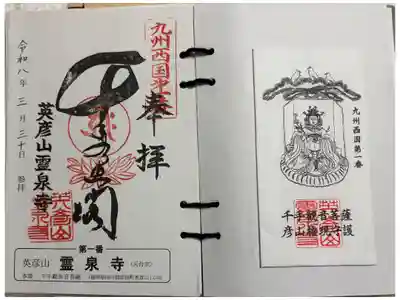 九州西国第一番
奉拝
令和八年三月三十日 参拝
英彦山霊泉寺
第一番
英彦山 霊泉寺 (天台宗)
本尊 千手観世音菩薩
九州西国第一番
千手観音菩薩
彦山権現守護